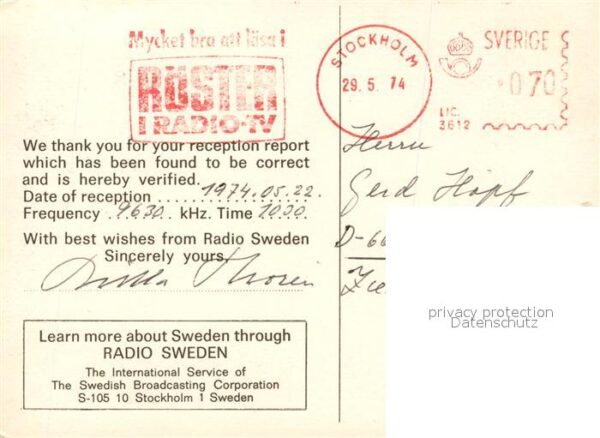 Mycket bra att läsa i
RÖSTER
I RADIO-TV
STOCKHOLM
29. 5. 74
SVERIGE
070
LIC.
3612
We thank you for your reception report
which has been found to be correct
and is hereby verified.
Date of reception 1974.05.22.
Frequency 9630 kHz. Time 1030
With best wishes from Radio Sweden
Sincerely yours,
Herrn
Gerd Hopf
D-66
privacy protection
Datenschutz
Learn more about Sweden through
RADIO SWEDEN
The International Service of
The Swedish Broadcasting Corporation
S-105 10 Stockholm 1 Sweden